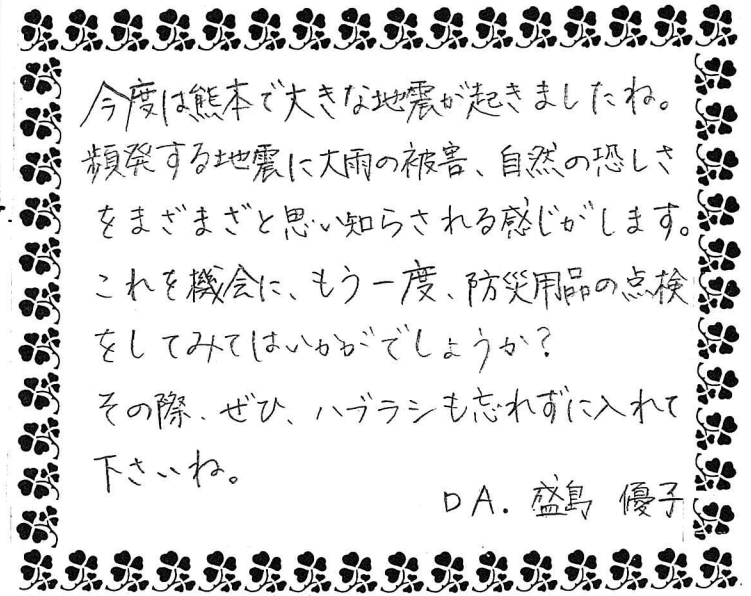 今度は熊本で大きな地震が起きましたね。
頻発する地震に大雨の被害、自然の恐しさ
をまざまざと思い知らされる感じがします。
これを機会に、もう一度、防災用品の点検
をしてみてはいかがでしょうか?
その際、ぜひ、ハブラシも忘れずに入れて
下さいね。
DA. 盛島 優子